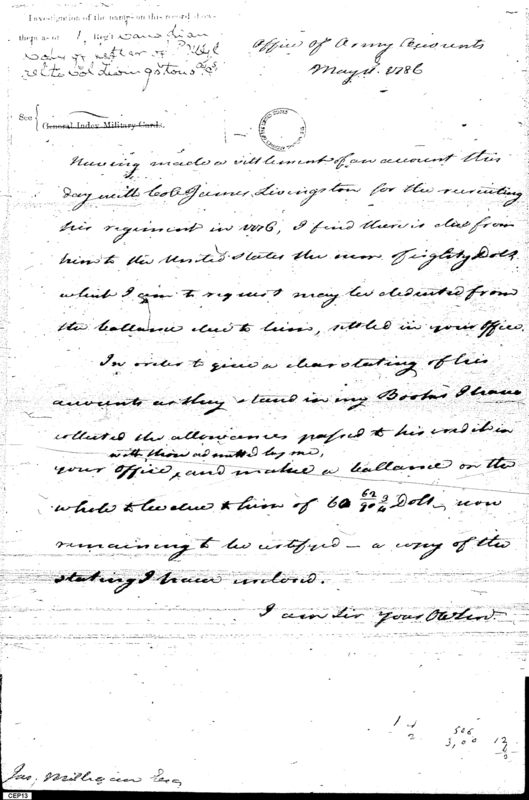 Investigation of the
on this record
1, Reg't Canadian
Copy of letter of
relte Col Livingstons a/cs
Office of Army Accounts
May 11 1786
See General Index Military Cards.
Having made a settlement of an account this
day with Col James Livingston for the recruiting
his regiment in 1776, I find there is due from
him to the United States the sum of eighty Dolls
which I am to request may be deducted from
the ballance due to him, settled in your office.
In order to give a clear stating of his
accounts as they stand in my Books I have
collected the allowances passed to his credit in
with those admitted by me,
your Office, and make a ballance on the
whole to be due to him of 60 62/90 Dolls, now
remaining to be certifyed – a copy of the
stating I have inclosed.
I am Sir Your Ob Serv.
1 1/2
506
3,00
Jas, Milligan Esq
CEP13